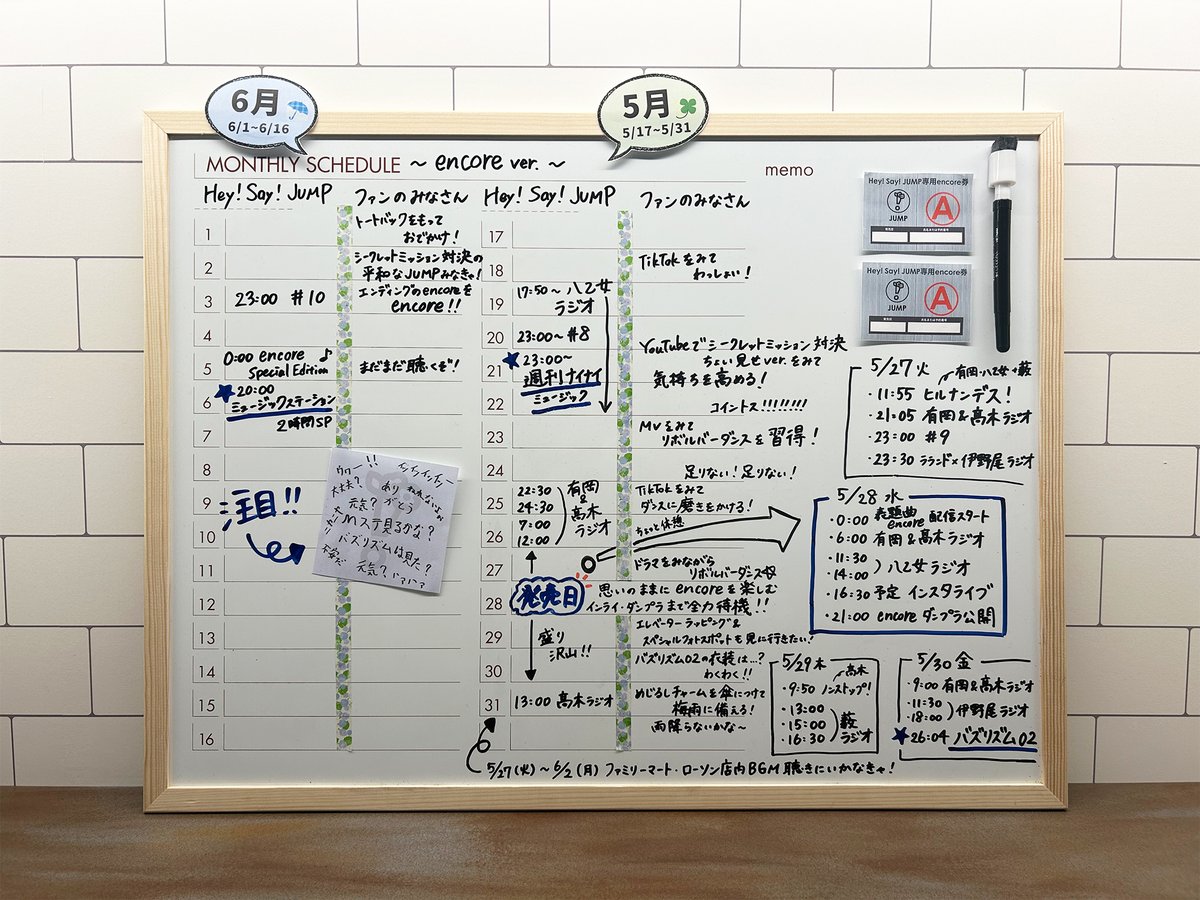 6月
6/1~6/16
5月
5/17~5/31
MONTHLY SCHEDULE ~ encore ver. ~
memo
Hey! Say! JUMP
ファンのみなさん
1
トートバックをもって
おでかけ!
2
シークレットミッション対決の
平和なJUMPみなきゃ!
3
23:00 #10
エンディングのencoreを
encore!!
4
5
0:00 encore ♪
Special Edition
まだまだ聴くぞ!
6
★20:00
ミュージックステーション
2時間SP
7
8
9
注目!!
10
11
12
13
14
15
16
ワー!!
大丈夫?
元気?
Mステ見るかな?
バズリズムは見た?
元気?
Hey! Say! JUMP
ファンのみなさん
17
18
TikTokをみて
わっしょい!
19
17:50~ 八乙女
ラジオ
20
23:00~ #8
YouTubeでシークレットミッション対決
ちょい見せver.をみて
21
★23:00~
週刊ナイナイ
ミュージック
気持ちを高める!
22
コイントス!!!!!!!!
23
MVをみて
リボルバーダンスを習得!
24
足りない!足りない!
25
22:30
24:30
7:00
12:00
有岡
&
高木
ラジオ
TikTokをみて
ダンスに磨きをかける!
26
ちょっと休憩
27
ドラマをみながら
リボルバーダンス
28
発売日
思いのままにencoreを楽しむ
インライ・ダンプラまで全力待機!!
29
盛り
沢山!!
エレベーターラッピング&
スペシャルフォトスポットも見に行きたい!
30
バズリズム02の衣装は…?
わくわく!!
31
13:00 高木ラジオ
めじるしチャームを傘につけて
梅雨に備える!
雨降らないかな~
5/27(火)~6/2(月) ファミリーマート・ローソン店内BGM 聴きにいかなきゃ!
Hey! Say! JUMP専用encore券
JUMP
A
Hey! Say! JUMP専用encore券
JUMP
A
5/27 火
有岡・八乙女・薮
・11:55 ヒルナンデス!
・21:05 有岡&高木ラジオ
・23:00 #9
・23:30 ラランド×伊野尾ラジオ
5/28 水
・0:00 表題曲
encore 配信スタート
・6:00 有岡&高木ラジオ
・11:30
・14:00
八乙女ラジオ
・16:30予定 インスタライブ
・21:00 encore ダンプラ公開
5/29 木
高木
・9:50 ノンストップ!
・13:00
・15:00
・16:30
薮
ラジオ
5/30 金
・9:00 有岡&高木ラジオ
・11:30
・18:00
伊野尾ラジオ
★26:04 バズリズム02